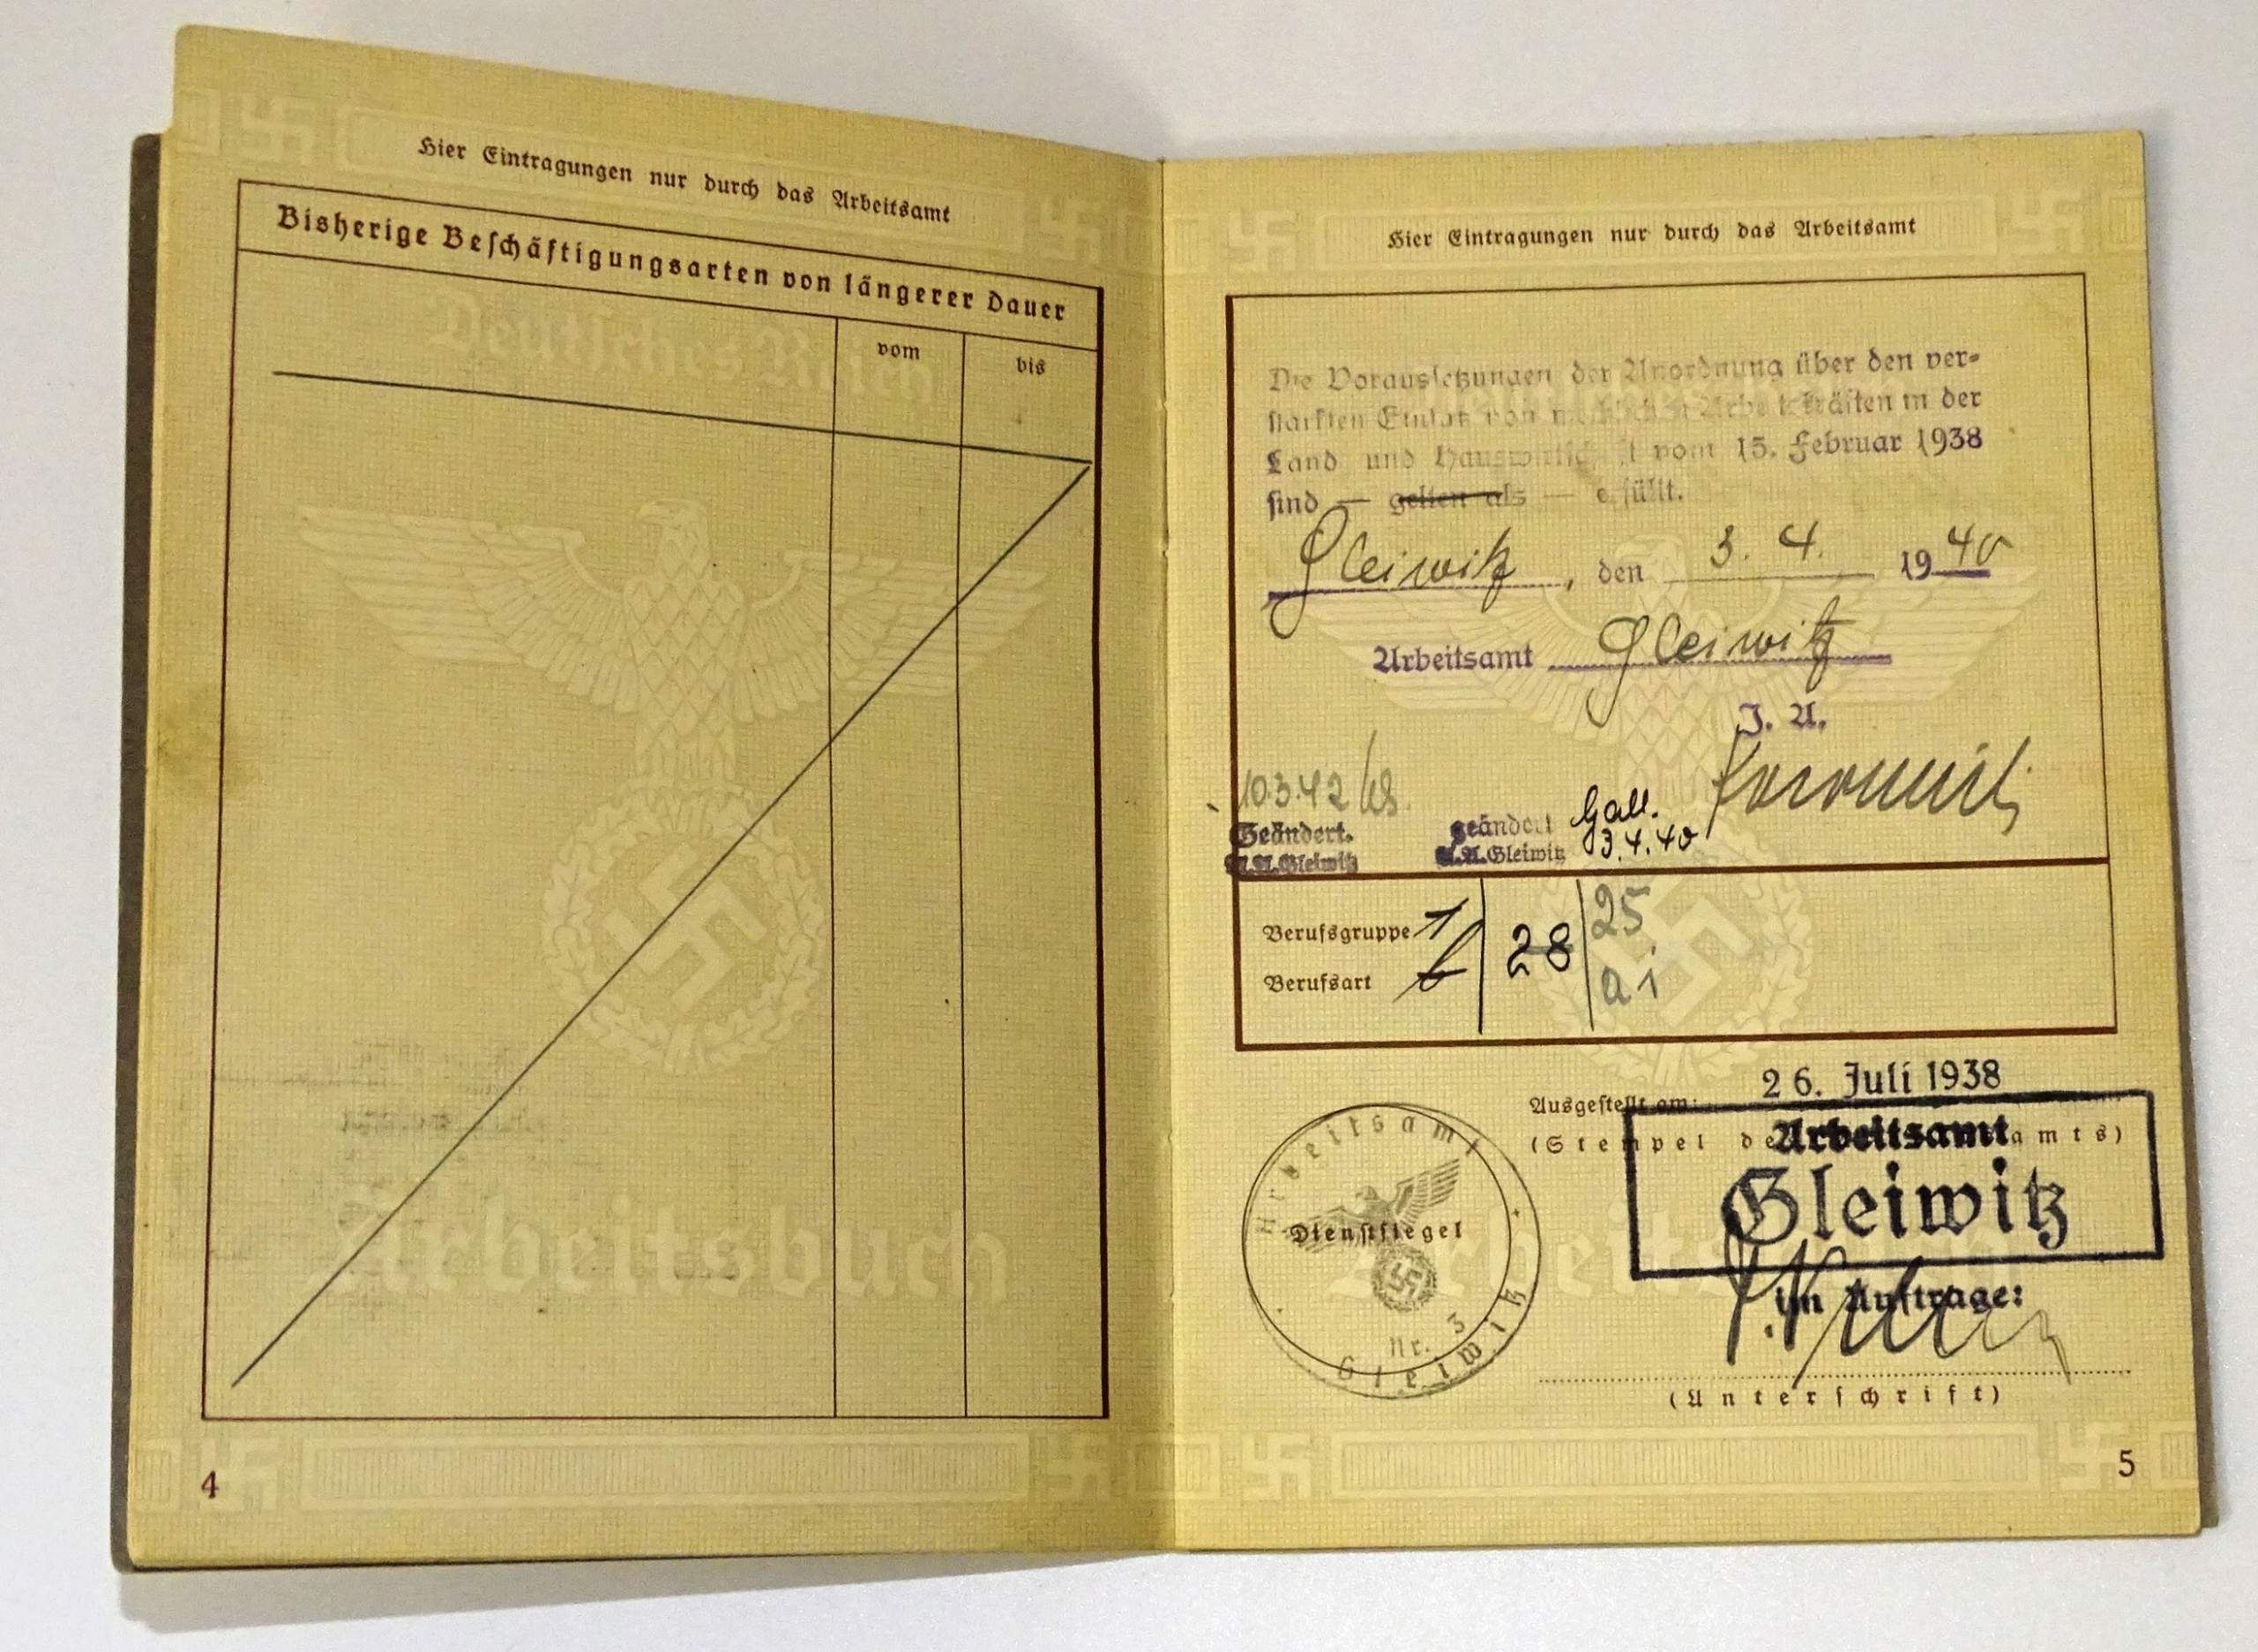 Hier Eintragungen nur durch das Arbeitsamt
Bisherige Beschäftigungsarten von längerer Dauer
vom
bis
Deutsches Reich
Arbeitsbuch
4
Hier Eintragungen nur durch das Arbeitsamt
Die Voraussetzungen der Anordnung über den ver-
stärkten Einsatz von weiblichen Arbeitskräften in der
Land und Hauswirtschaft vom 15. Februar 1938
sind — gelten als — erfüllt.
Gleiwitz, den 3. 4. 1940
Arbeitsamt Gleiwitz
I. A.
10.3.42
Geändert.
A.A. Gleiwitz
geändert
A.A. Gleiwitz
Gall.
3.4.40
Berufsgruppe 1
Berufsart b
28
25
a 1
26. Juli 1938
Ausgestellt am:
(Stempel des Arbeitsamts)
Arbeitsamt
Gleiwitz
Im Auftrage:
(Unterschrift)
Arbeitsamt
Dienstsiegel
Nr. 3
Gleiwitz
5